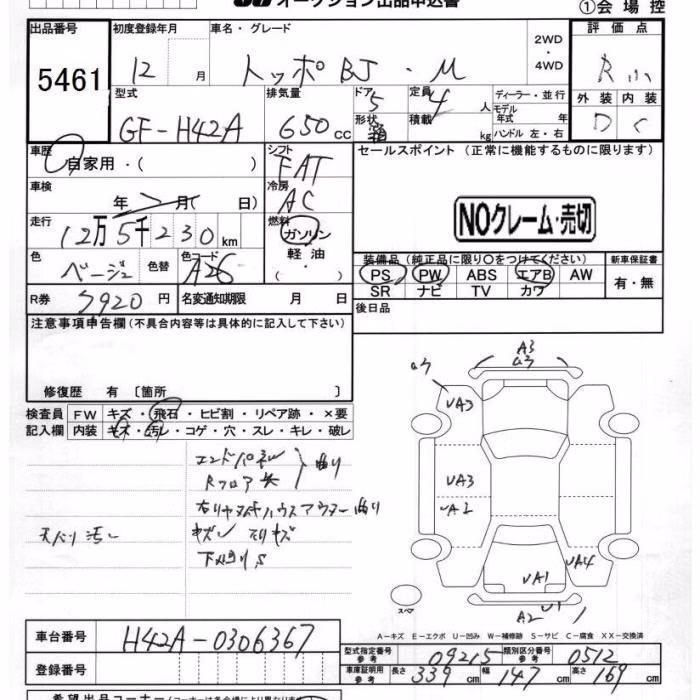 オークション出品申込書
①会場控
出品番号
5461
初度登録年月
12 月
車名・グレード
トッポBJ・M
2WD
・
4WD
評価点
R
外装 内装
D C
型式
GF-H42A
排気量
650 cc
ドア
5
形状
定員
4 人
積載
kg
ディーラー・並行
モデル
年式 年
ハンドル 左・右
車歴
自家用・( )
シフト
FAT
セールスポイント (正常に機能するものに限ります)
NOクレーム・売切
車検
年 月( 日)
冷房
AC
走行
12万5千230km
燃料
ガソリン
軽油
( )
色
ベージュ
色替
色コード
A26
装備品(純正品に限り○をつけてください)
新車保証書
PS PW ABS エアB AW
SR ナビ TV カワ
有・無
R券
7920円
名変通知期限 月 日
後日品
注意事項申告欄(不具合内容等は具体的に記入して下さい)
修復歴 有〔箇所 〕
検査員
記入欄
FW キズ・飛石・ヒビ割・リペア跡・×要
内装 キズ・汚レ・コゲ・穴・スレ・キレ・破レ
エンドパネル
Rフロア
曲り
天バリ汚レ
下廻りS
A3
UA3
UA3
UA2
UA4
UA1
A2
スペア
A-キズ E-エクボ U-凹み W-補修跡 S-サビ C-腐食 XX-交換済
車台番号
H42A-0306367
登録番号
型式指定番号
参考
09215
類別区分番号
参考
0512
車庫証明用
参考
長さ 339 cm 幅 147 cm 高さ 169 cm
希望出品コーナー